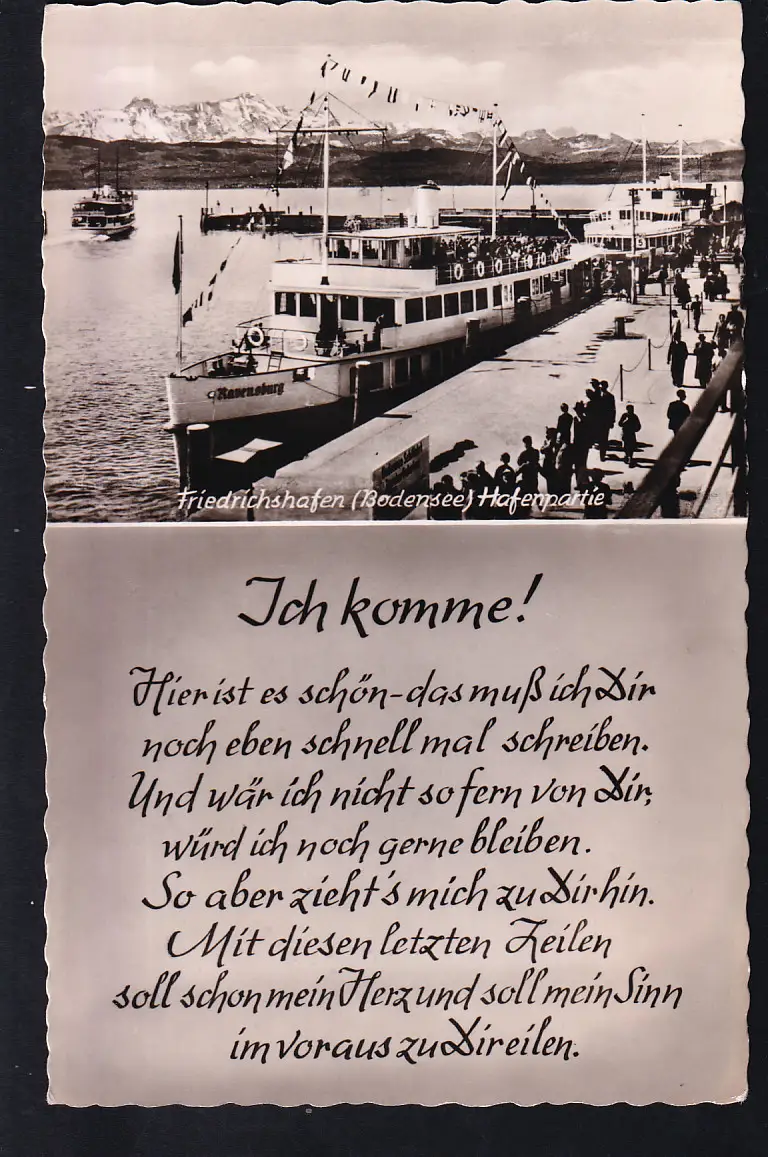 Ravensburg
Friedrichshafen (Bodensee) Hafenpartie
Ich komme!
Hier ist es schön - das muß ich Dir
noch eben schnell mal schreiben.
Und wär ich nicht so fern von Dir,
würd ich noch gerne bleiben.
So aber zieht's mich zu Dir hin.
Mit diesen letzten Zeilen
soll schon mein Herz und soll mein Sinn
im voraus zu Dir eilen.